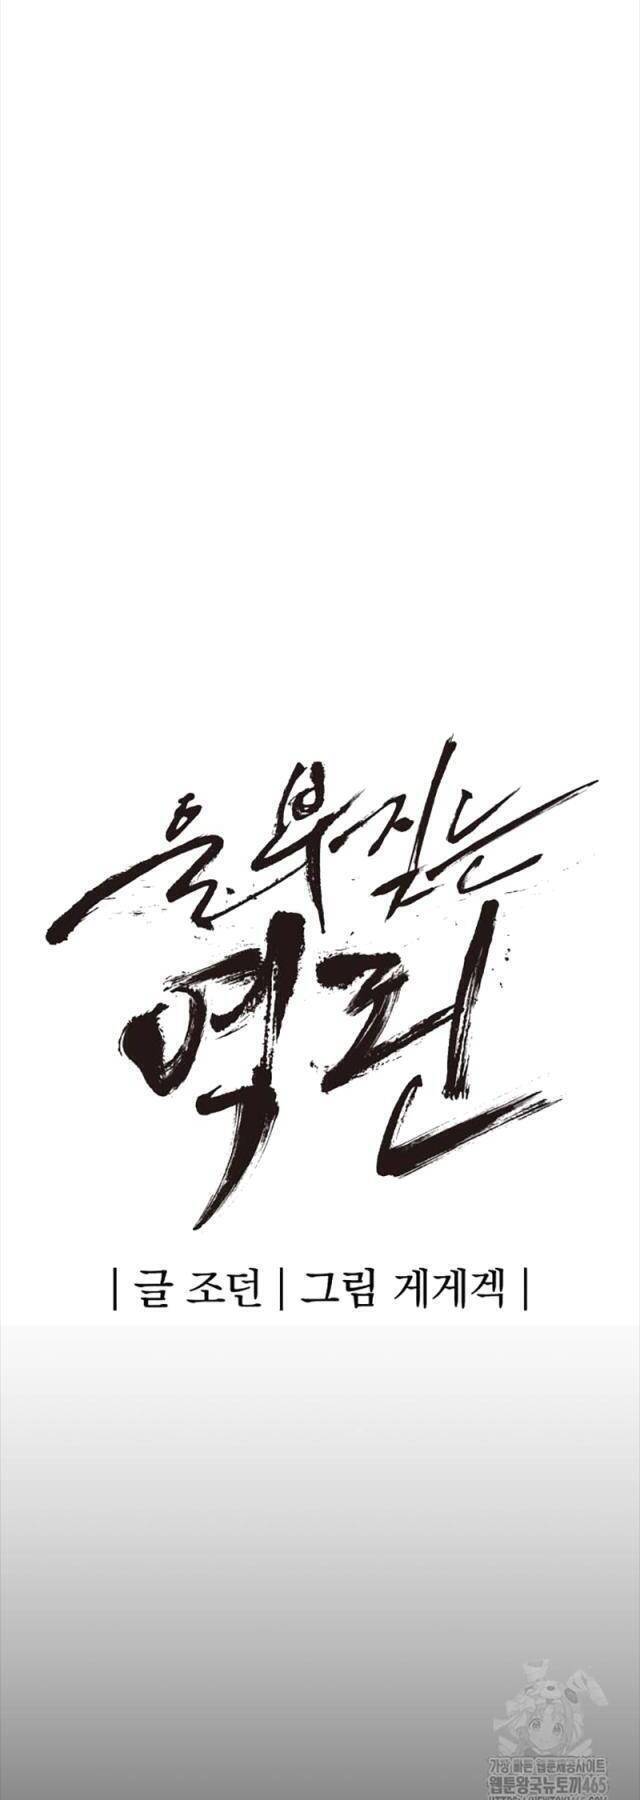 울부짖는
역린
| 글 조던 | 그림 게게겍 |
가장 빠른 웹툰제공사이트
웹툰왕국뉴토끼465